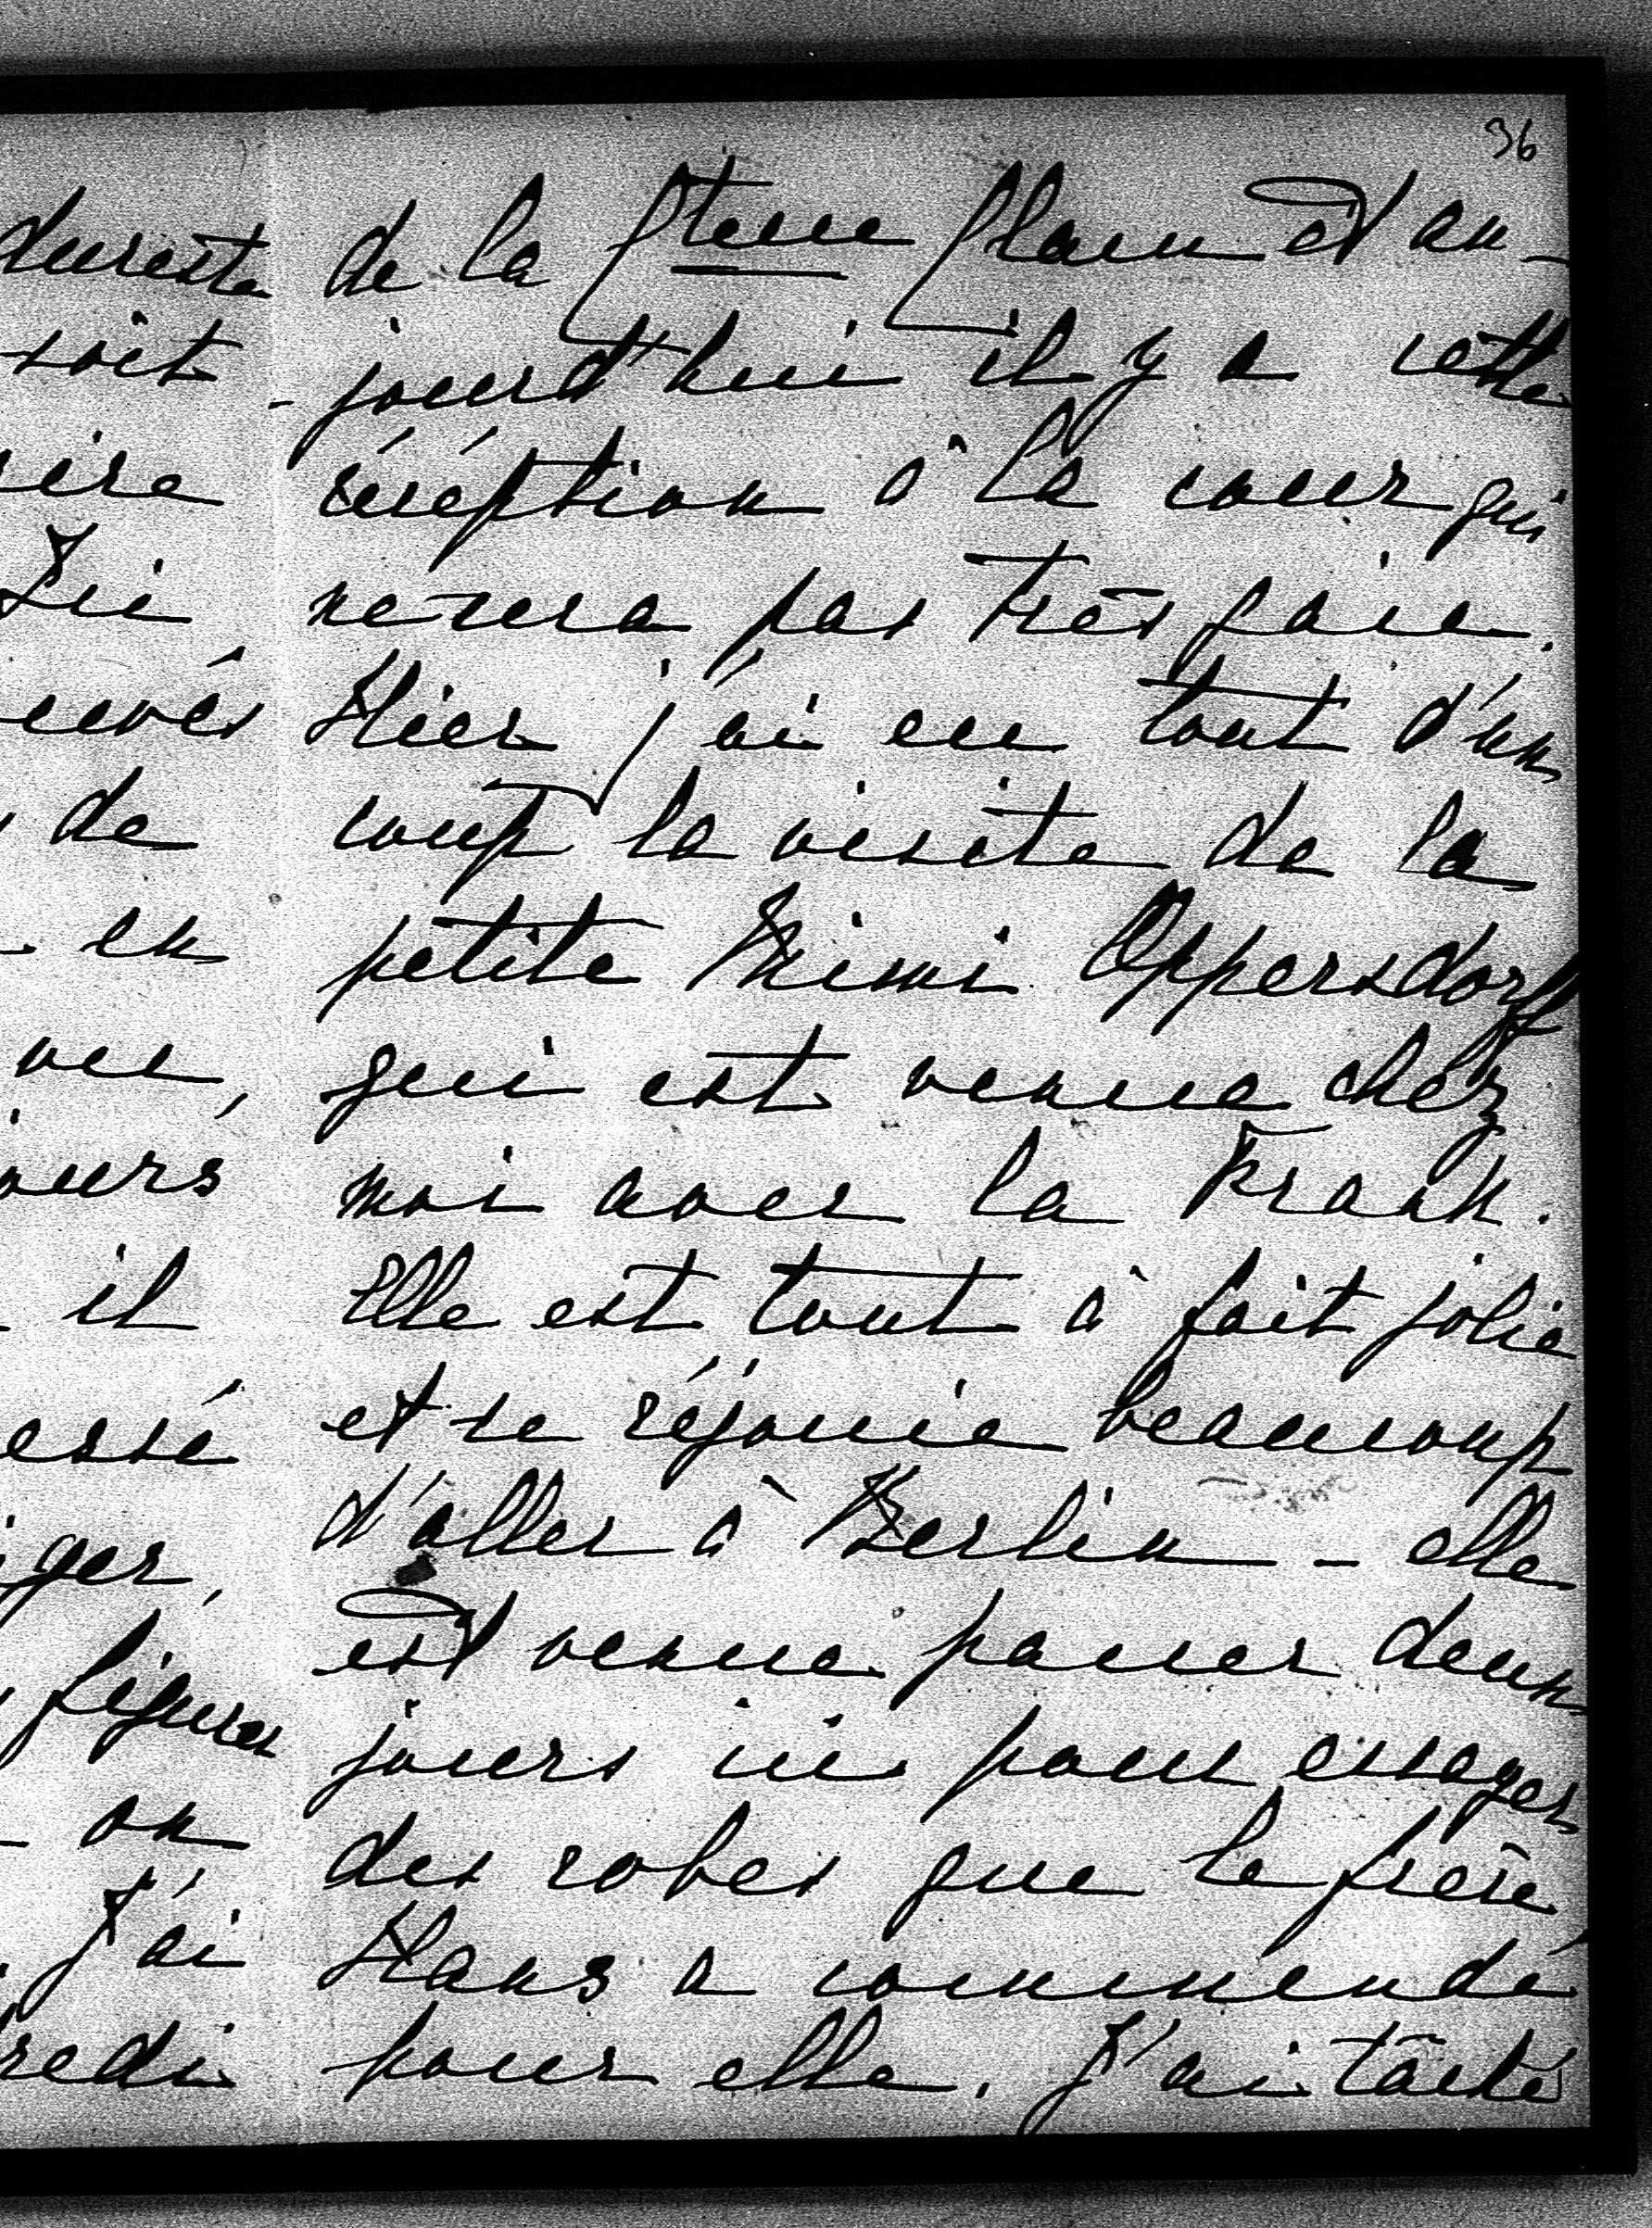 36
dureste
soit
Lui
de
en
vu,
ours
il
essé
ger,
figures
on
J'ai
redi
de la et au-
-jourd'hui il y a cette
réception à la cour qui
ne sera pas très gaie.
Hier j'ai eu tout d'un
coup la visite de la
petite Mimi Oppersdorff
qui est venue chez
moi avec la Frank.
Elle est tout à fait jolie
et se réjouie beaucoup
d'aller à Berlin - elle
est venue passer deux
jours ici pour essayer
des robes que le frère
Hans a commendé
pour elle. J'ai tâché